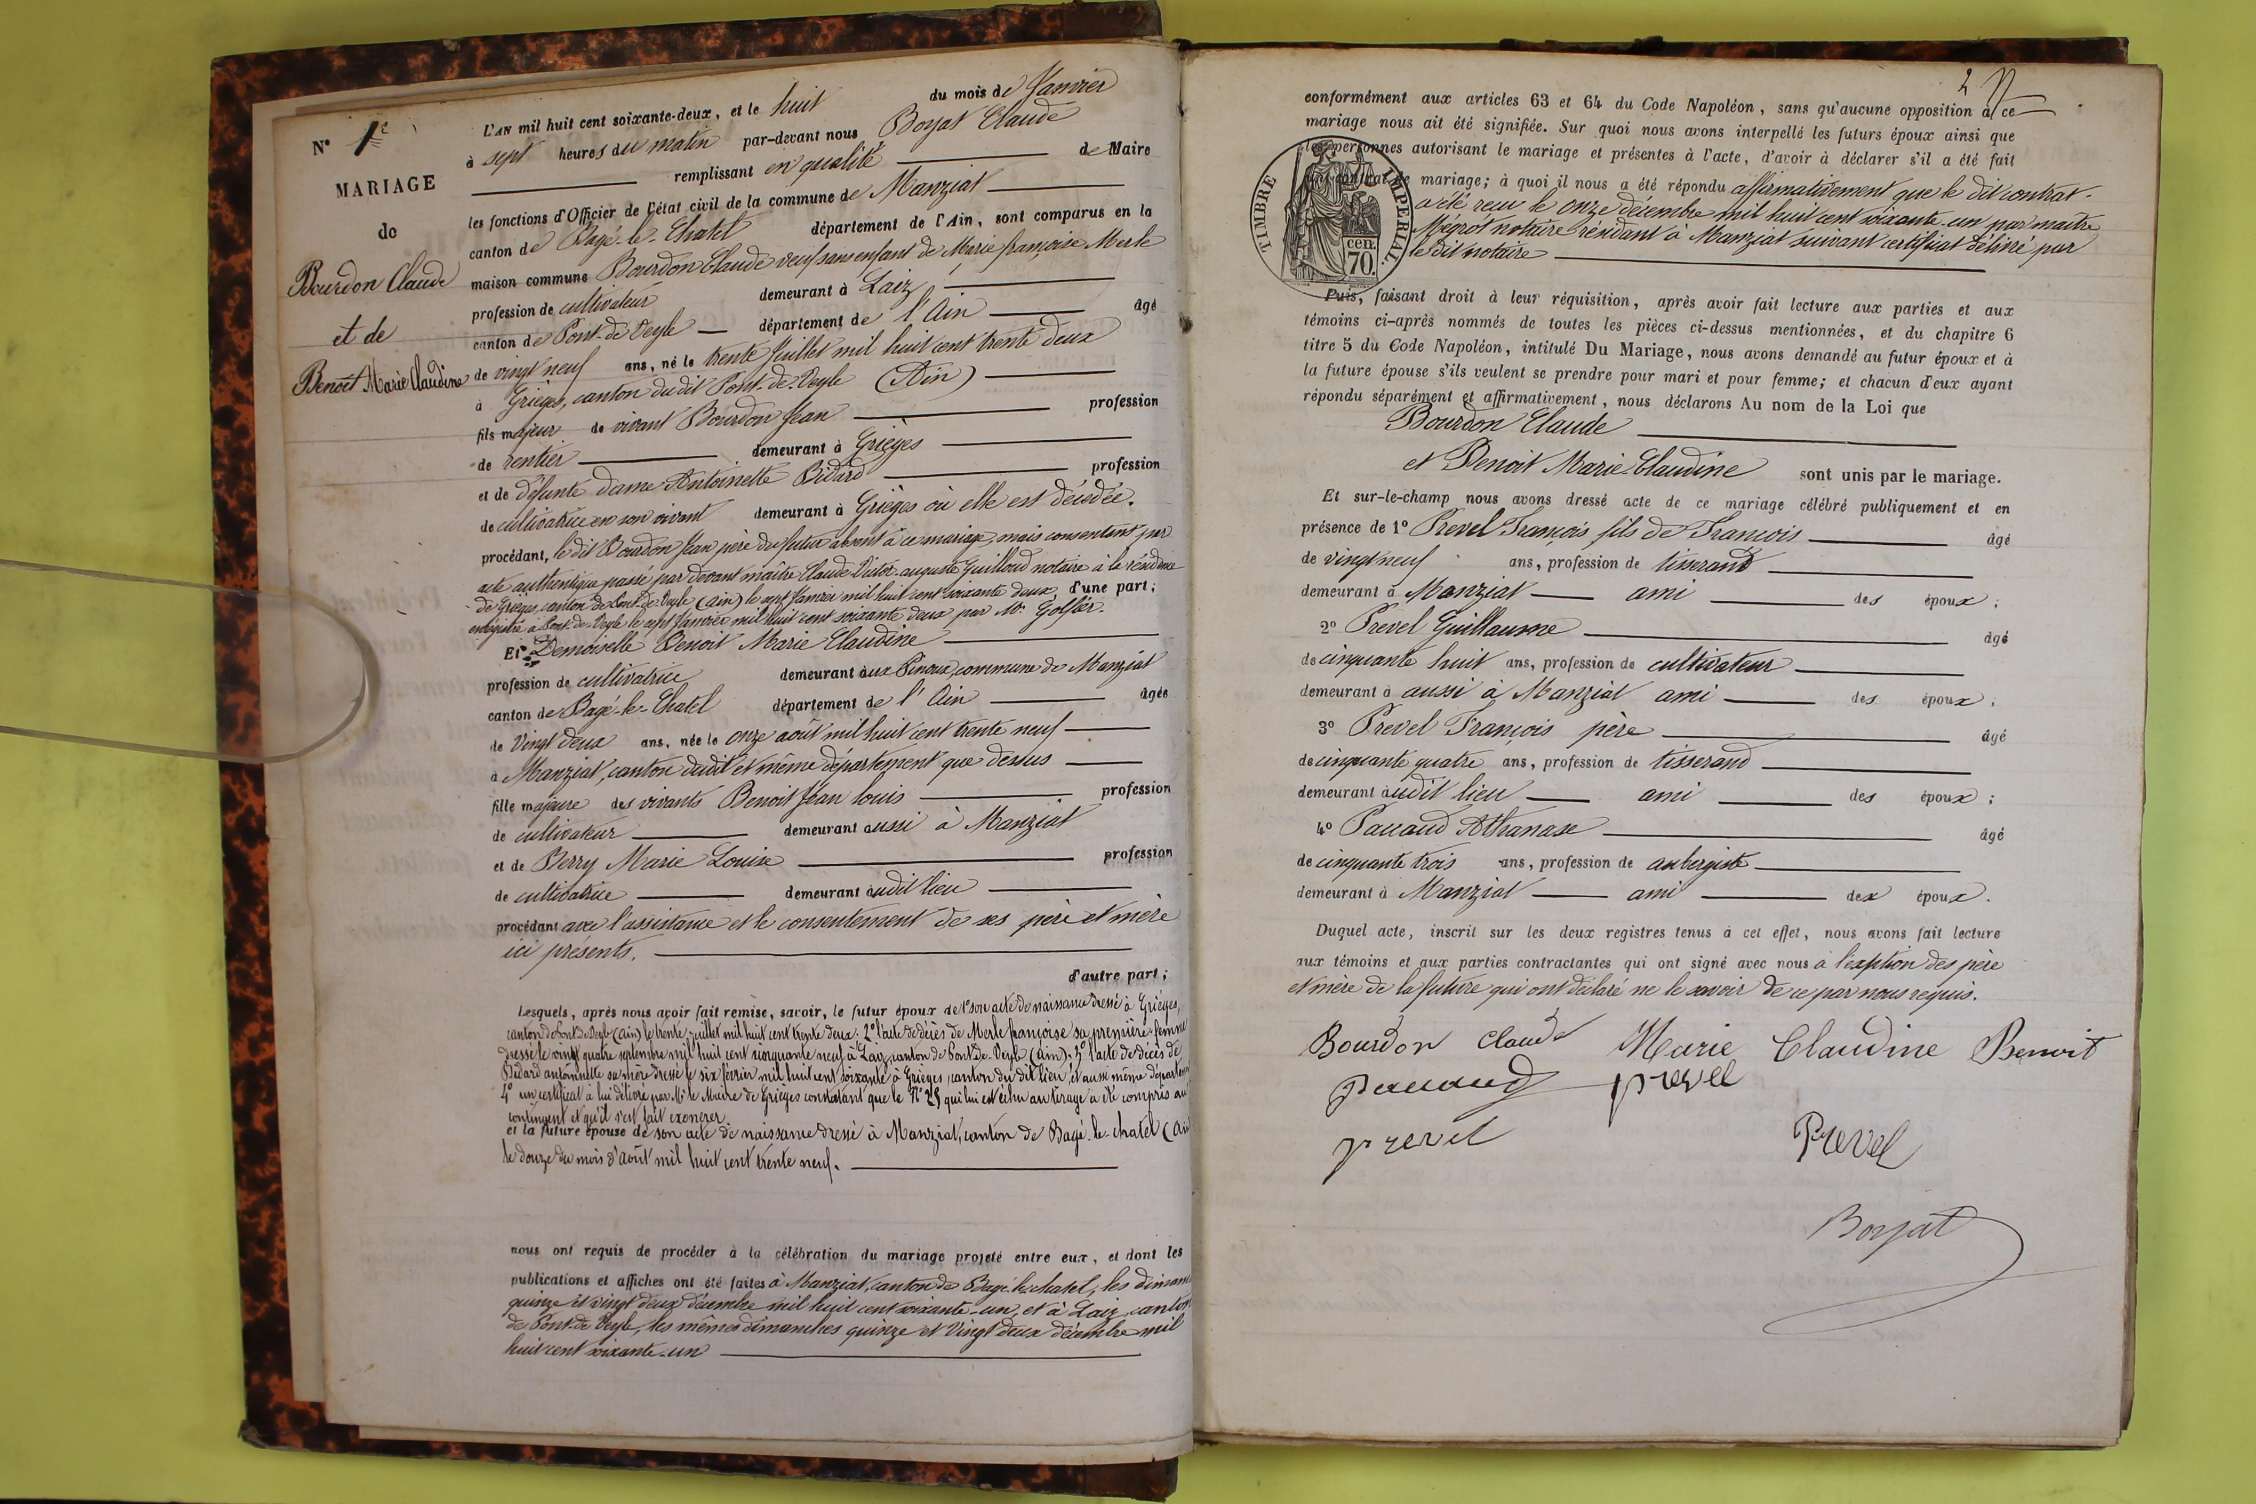 N° 1er
MARIAGE
de
Bourdon Claude
et de
Benoît Marie Claudine
L'AN mil huit cent soixante-deux, et le huit du mois de Janvier
à sept heures du matin par-devant nous Boyat Claude
remplissant en qualité de Maire
les fonctions d'Officier de l'état civil de la commune de Manziat
canton de Bagé-le-Chatel département de l'Ain, sont comparus en la
maison commune Bourdon Claude veuf sans enfant de Marie françoise Merle
profession de cultivateur demeurant à Laiz
canton de Pont-de-Veyle département de l'Ain âgé
de vingt neuf ans, né le trente Juillet mil huit cent trente deux
à Grièges, canton du dit Pont-de-Veyle (Ain)
fils majeur de vivant Bourdon Jean profession
de rentier demeurant à Grièges
et de défunte dame Antoinette Bidard profession
de cultivatrice en son vivant demeurant à Grièges où elle est décédée.
procédant, le dit Bourdon Jean père du futur absent à ce mariage, mais consentant par
acte authentique passé par devant maître Claude Victor auguste Guilloud notaire à la résidence
de Grièges, canton de Pont-de-Veyle (Ain) le sept Janvier mil huit cent soixante deux, d'une part;
enrégistré à Pont-de-Veyle le sept Janvier mil huit cent soixante deux par Mr Golfier.
Et Demoiselle Benoit Marie Claudine
profession de cultivatrice demeurant aux Pinoux, commune de Manziat
canton de Bagé-le-Chatel département de l'Ain âgée
de Vingt deux ans, née le onze août mil huit cent trente neuf
à Manziat, canton dudit et même département que dessus
fille majeure des vivants Benoit Jean louis profession
de cultivateur demeurant aussi à Manziat
et de Berry Marie Louise profession
de cultivatrice demeurant audit lieu
procédant avec l'assistance et le consentement de ses père et mère
ici présents.
d'autre part;
Lesquels, après nous avoir fait remise, savoir, le futur époux de 1° son acte de naissance dressé à Grièges,
canton de Pont-de-Veyle (Ain) le trente Juillet mil huit cent trente deux; 2° l'acte de décès de Merle françoise sa première femme
dressé le vingt quatre septembre mil huit cent cinquante neuf à Laiz, canton de Pont-de-Veyle (Ain); 3° l'acte de décès de
Bidard antoinnette sa mère dressé le six février mil huit cent soixante à Grièges, canton du dit lieu, et aussi même départem
4° un certificat à lui délivré par Mr le Maire de Grièges constatant que le N° 28 qui lui est échu au tirage a été compris au
contingent et qu'il s'est fait exonérer
et la future épouse de son acte de naissance dressé à Manziat, canton de Bagé-le-chatel (Ain
le douze du mois d'août mil huit cent trente neuf.
nous ont requis de procéder à la célébration du mariage projeté entre eux, et dont les
publications et affiches ont été faites à Manziat, canton de Bagé-le-chatel, les diman
quinze et vingt deux décembre mil huit cent soixante-un, et à Laiz, canton
de Pont-de-Veyle, les mêmes dimanches quinze et Vingt deux décembre mil
huit cent soixante-un
2
conformément aux articles 63 et 64 du Code Napoléon, sans qu'aucune opposition à ce
mariage nous ait été signifiée. Sur quoi nous avons interpellé les futurs époux ainsi que
les personnes autorisant le mariage et présentes à l'acte, d'avoir à déclarer s'il a été fait
un contrat de mariage; à quoi il nous a été répondu affirmativement que le dit contrat
a été reçu le onze décembre mil huit cent soixante-un par maître
Mégrot notaire résidant à Manziat suivant certificat délivré par
le dit notaire
TIMBRE IMPÉRIAL.
cen.
70.
Puis, faisant droit à leur réquisition, après avoir fait lecture aux parties et aux
témoins ci-après nommés de toutes les pièces ci-dessus mentionnées, et du chapitre 6
titre 5 du Code Napoléon, intitulé Du Mariage, nous avons demandé au futur époux et à
la future épouse s'ils veulent se prendre pour mari et pour femme; et chacun d'eux ayant
répondu séparément et affirmativement, nous déclarons Au nom de la Loi que
Bourdon Claude
et Benoit Marie-Claudine sont unis par le mariage.
Et sur-le-champ nous avons dressé acte de ce mariage célébré publiquement et en
présence de 1° Prevel François fils de François âgé
de vingt neuf ans, profession de tisserand
demeurant à Manziat ami des époux;
2° Prevel Guillaume âgé
de cinquante huit ans, profession de cultivateur
demeurant à aussi à Manziat ami des époux;
3° Prevel François père âgé
de cinquante quatre ans, profession de tisserand
demeurant audit lieu ami des époux;
4° Paccaud Athanase âgé
de cinquante trois ans, profession de aubergiste
demeurant à Manziat ami des époux.
Duquel acte, inscrit sur les deux registres tenus à cet effet, nous avons fait lecture
aux témoins et aux parties contractantes qui ont signé avec nous à l'exption des père
et mère de la future qui ont déclaré ne le savoir de ce par nous requis.
Bourdon Claude Marie Claudine Benoit
paccaud prevel
prevel Prevel
Boyat